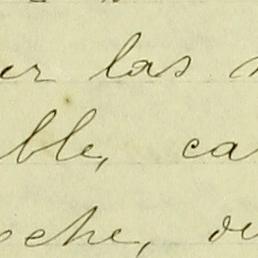 er las
ble, ca
oche, de